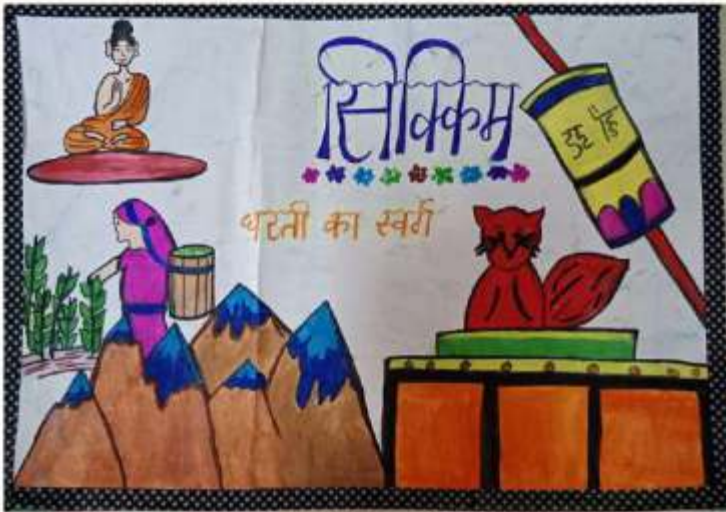 सिक्किम
धरती का स्वर्ग